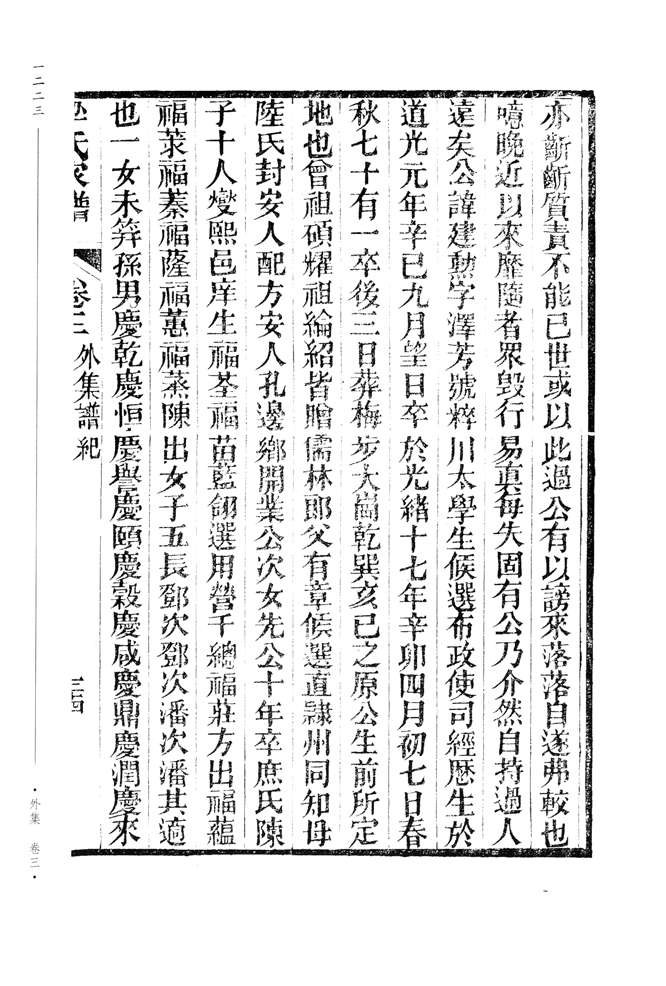 亦齗齗質責不能已世或以此過公有以謗來落落自遂弗較也
噫晚近以來靡隨者眾毀行易真每失固有公乃介然自持過人
遠矣公諱建勳字澤芳號粹川太學生候選布政使司經歷生於
道光元年辛巳九月望日卒於光緒十七年辛卯四月初七日春
秋七十有一卒後三日葬梅步大崗乾巽亥巳之原公生前所定
地也曾祖碩耀祖綸紹皆贈儒林郎父有章候選直隸州同知母
陸氏封安人配方安人孔邊鄉開業公次女先公十年卒庶氏陳
子十人燮熙邑庠生福荃福苗藍翎選用營千總福莊方出福蘊
福菉福蓁福薩福蕙福蒸陳出女子五長鄧次鄧次潘次潘其適
也一女未笄孫男慶乾慶恒慶譽慶頤慶穀慶咸慶鼎慶潤慶來
氏家譜 卷三 外集譜紀 三四
一二二三
·外集 卷三·